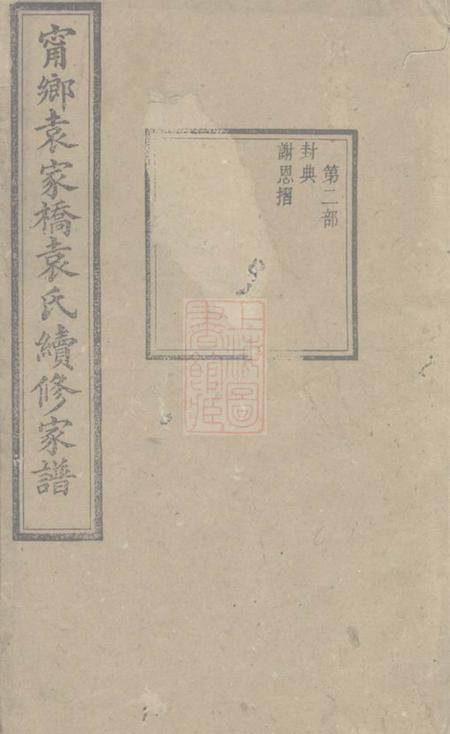 甯鄉袁家橋袁氏續修家譜
第二部
封典
謝恩摺
上海圖
書館藏